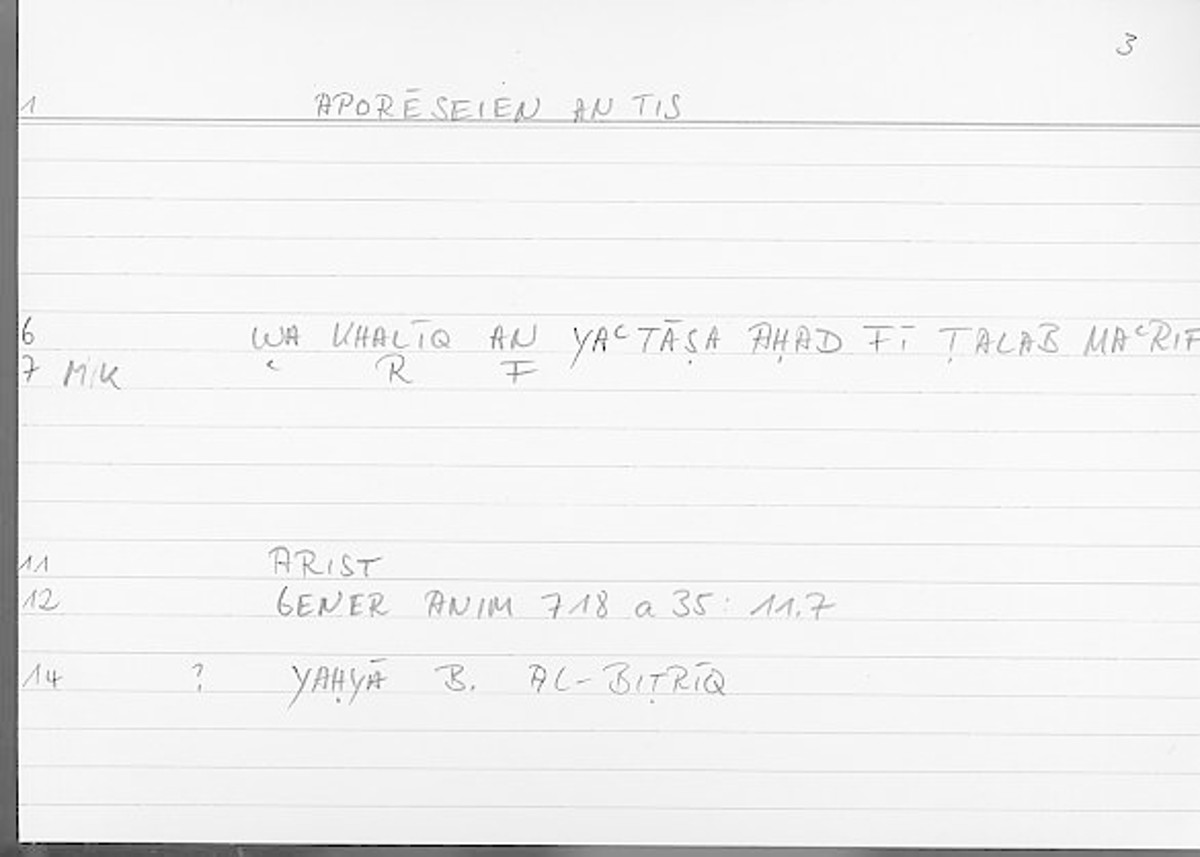 3
1 APORĒSEIEN AN TIS
6 WA KHALĪQ AN YAᶜTĀṢA AḤAD FĪ ṬALAB MAᶜRIF
7 MIK ᶜ R F
11 ARIST
12 GENER ANIM 718 a 35: 11.7
14 ? YAḤYĀ B. AL-BIṬRĪQ